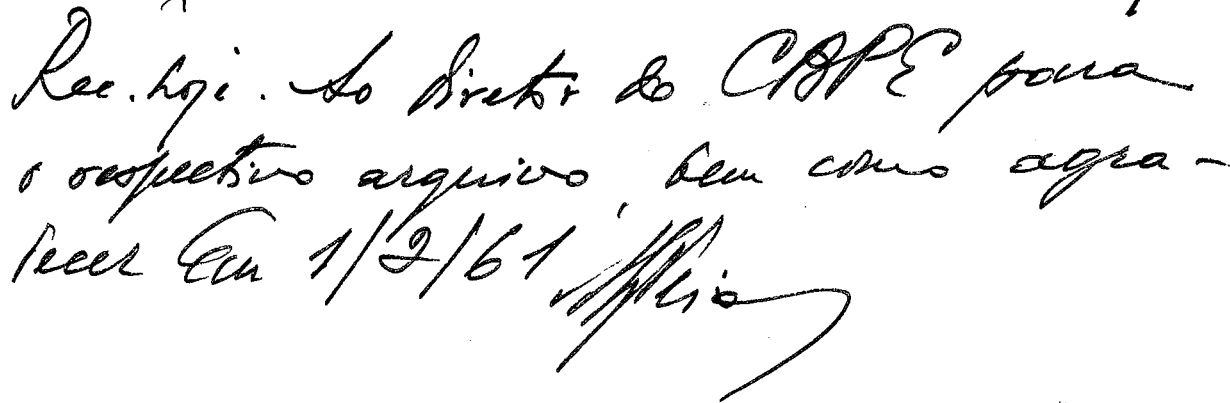 Rec. hoje. Ao diretor do CAPE para
o respectivo arquivo, bem como agra-
decer Em 1/2/61